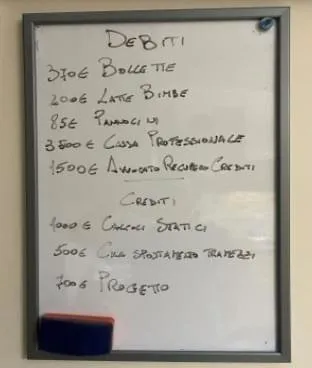 DEBITI
370€ BOLLETTE
200€ LATTE BIMBE
85€ PANNOLINI
3500€ CASSA PROFESSIONALE
1500€ AVVOCATO RECUPERO CREDITI
CREDITI
1000€ CALCOLI STATICI
500€ CILA SPOSTAMENTO TRAMEZZI
700€ PROGETTO